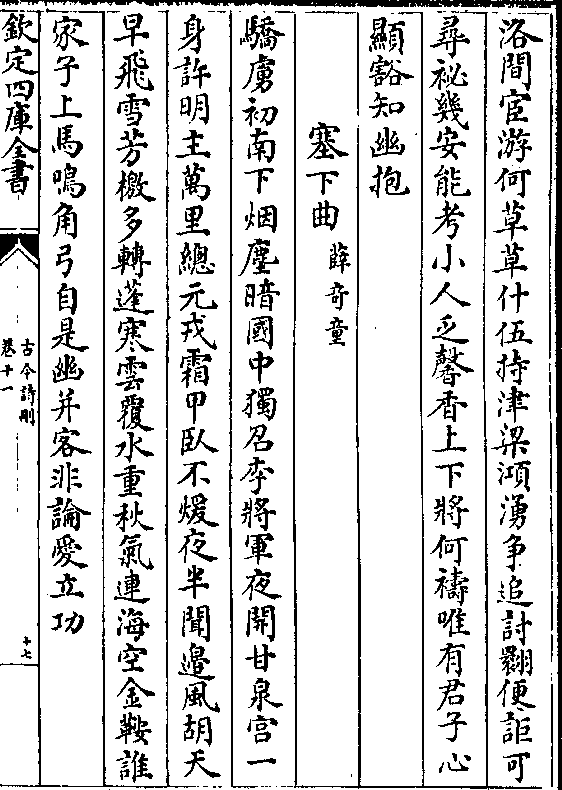 洛間宦游何草草什伍持津梁澒湧争追討翾便詎可
尋祕幾安能考小人乏馨香上下將何禱唯有君子心
顯豁知幽抱
塞下曲 薛奇童
驕虜初南下烟塵暗國中獨召李將軍夜開甘泉宫一
身許明主萬里總元戎霜甲臥不煖夜半聞邉風胡天
早飛雪荒檄多轉蓬寒雲覆水重秋氣連海空金鞍誰
家子上馬鳴角弓自是幽并客非論愛立功
欽定四庫全書
古今詩刪
卷十一
十七